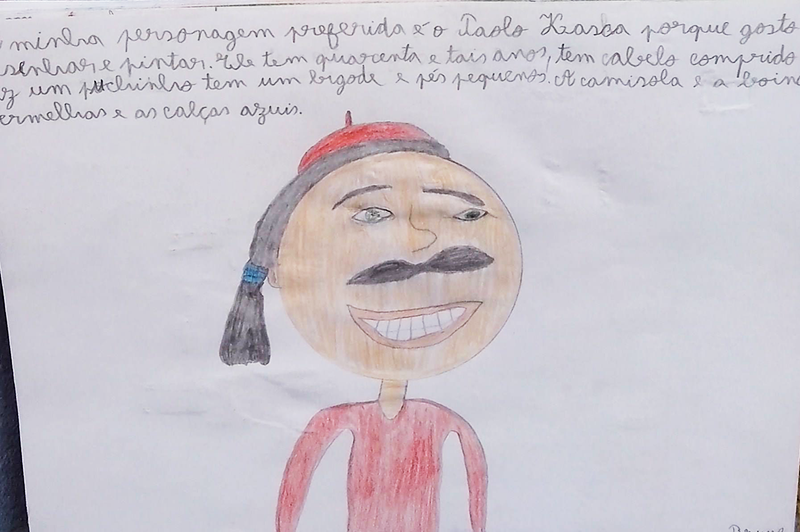 minha personagem preferida é o Paolo Krasca porque gosto
senhar e pintar. Ele tem quarenta e tais anos, tem cabelo comprido
z um puchinho tem um bigode e pés pequenos. A camisola e a boin
ermelhas e as calças azuis.